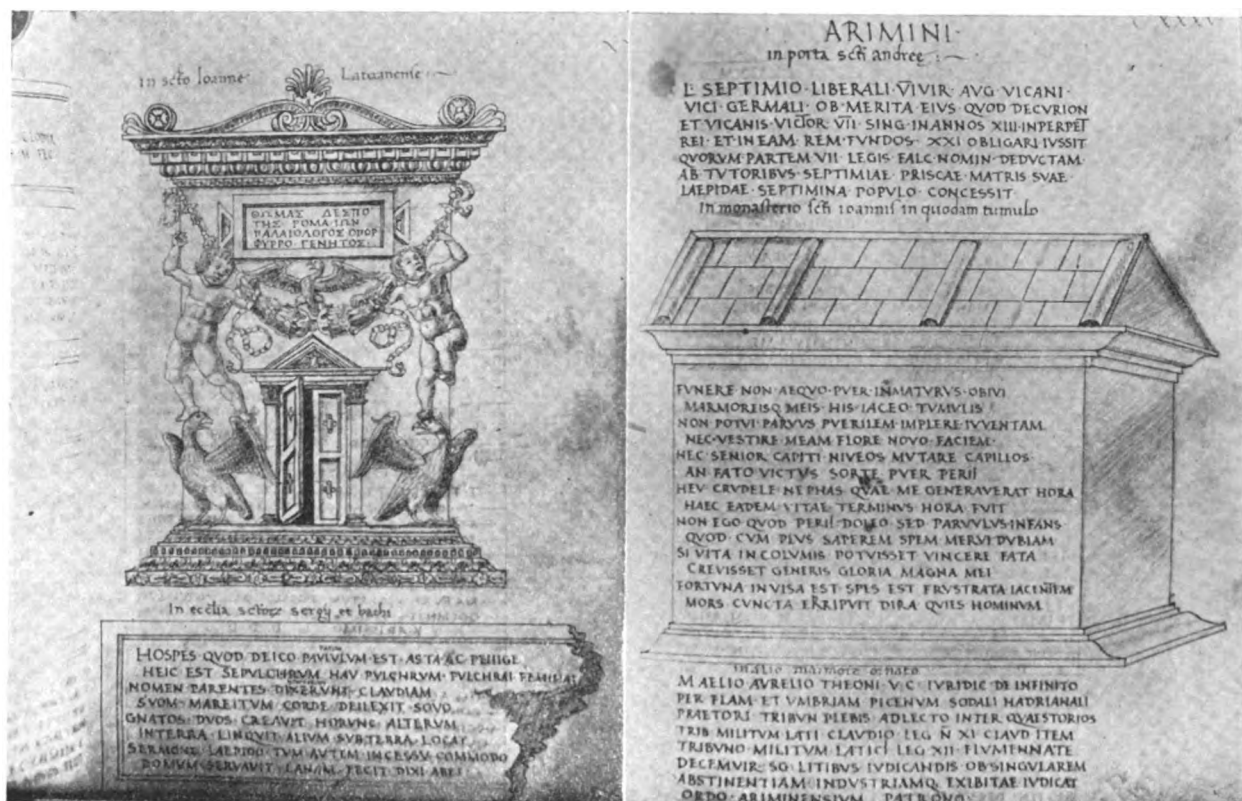 In scto Ioanne Lateranense
ΘΩΜΑΣ ΔΕΣΠΟ
ΤΗΣ ΡΟΜΑΙΩΝ
ΠΑΛΑΙΟΛΟΓΟΣ ΟΠΟΡ
ΦΥΡΡΟ ΓΕΝΗΤΟΣ
In ecclia sctorz sergii et bachi
HOSPES QVOD DEICO PAVLVLVM EST ASTA AC PELLIGE
HEIC EST SEPVLCHRVM HAV PVLCHRVM PVLCHRAI FEMINAI
NOMEN PARENTES CLAVDIAM
SVOM MAREITVM CORDE DEILEXIT SOVO
GNATOS DVOS CREAVIT HORVNC ALTERVM
INTERRA LINQVIT ALIVM SVBTERRA LOCAT
SERMONE LAEPIDO TVM AVTEM INCESSV COMMODO
DOMVM SERVAVIT LANAM FECIT DIXI ABEI
ARIMINI
in porta scti andree
L SEPTIMIO LIBERALI VIVIR AVG VICANI
VICI GERMALI OB MERITA EIVS QVOD DECVRION
ET VICANIS VICTOR VII SING INANNOS XIII INPERPET
REI ET INEAM REM TVNDOS XXI OBLIGARI IVSSIT
QVORVM PARTEM VII LEGIS FALC NOMIN DEDVCTAM
AB TVTORIBVS SEPTIMIAE PRISCAE MATRIS SVAE
LAEPIDAE SEPTIMINA POPVLO CONCESSIT
In monasterio scti ioannis in quodam tumulo
FVNERE NON AEQVO PVER INMATVRVS OBIVI
MARMOREISQ MEIS HIS IACEO TVMVLIS
NON POTVI PARVVS PVERILEM IMPLERE IVVENTAM
NEC VESTIRE MEAM FLORE NOVO FACIEM
NEC SENIOR CAPITI NIVEOS MVTARE CAPILLOS
AN FATO VICTVS SORTE PVER PERII
HEV CRVDELE NEPHAS QVAE ME GENERAVERAT HORA
HAEC EADEM VITAE TERMINVS HORA FVIT
NON EGO QVOD PERII DOLEO SED PARVVLVS INFANS
QVOD CVM PLVS SAPEREM SPEM MERVI DVBIAM
SI VITA INCOLVMIS POTVISSET VINCERE FATA
CREVISSET GENERIS GLORIA MAGNA MEI
FORTVNA INVISA EST SPES EST FRVSTRATA IACENTEM
MORS CVNCTA ERRIPVIT DIRA QVIES HOMINVM
In alio marmore ornato
M AELIO AVRELIO THEONI V C IVRIDIC DE INFINITO
PER FLAM ET VMBRIAM PICENVM SODALI HADRIANALI
PRAETORI TRIBVN PLEBIS ADLECTO INTER QVAESTORIOS
TRIB MILITVM LATI CLAVDIO LEG N XI CLAVD ITEM
TRIBVNO MILITVM LATICL LEG XII FIVMENNATE
DECEMVIR SG LITIBVS IVDICANDIS OBSINGVLAREM
ABSTINENTIAM INDVSTRIAMQ EXIBITAE IVDICAT
ORDO ARIMINENSIVM PATRONO